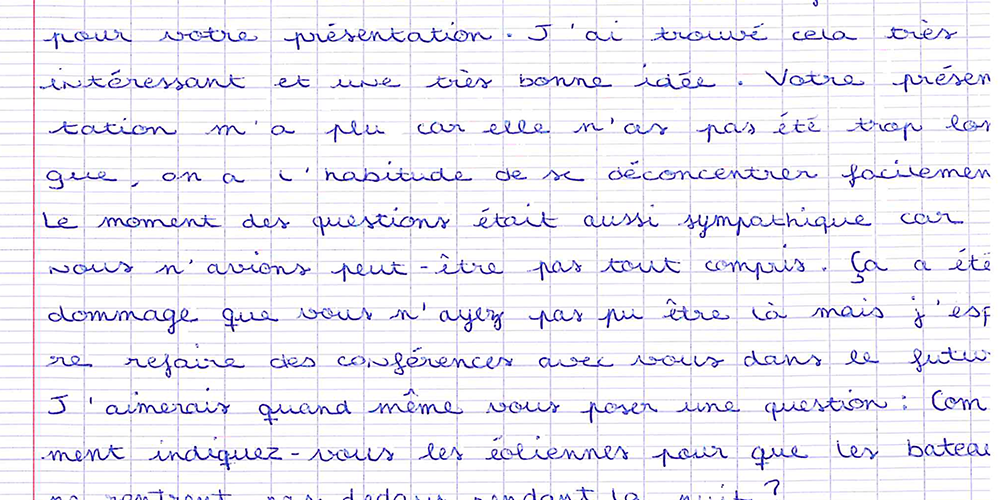 pour votre présentation. J'ai trouvé cela très
intéressant et une très bonne idée. Votre présen
tation m'a plu car elle n'as pas été trop lon
gue, on a l'habitude de se déconcentrer facilemen
Le moment des questions était aussi sympathique car
nous n'avions peut-être pas tout compris. Ça a été
dommage que vous n'ayez pas pu être là mais j'esp
re refaire des conférences avec vous dans le futu
J'aimerais quand même vous poser une question : Com
ment indiquez-vous les éoliennes pour que les bateau
ne rentrent pas dedans pendant la nuit ?